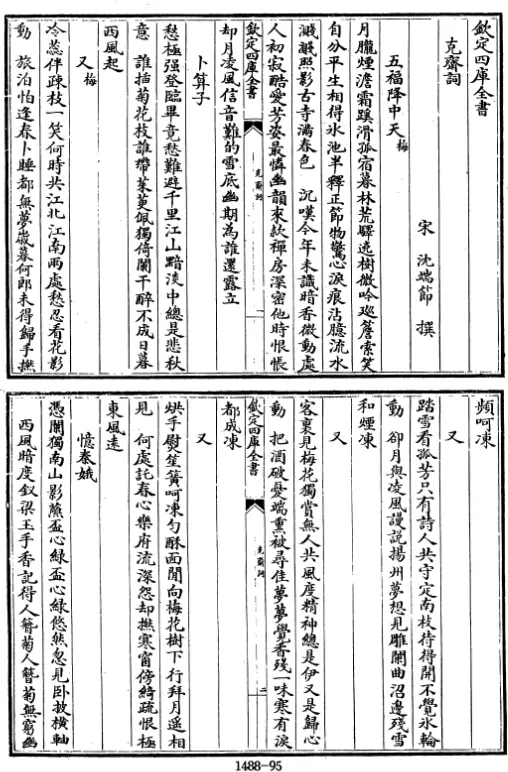 欽定四庫全書
克齋詞
宋 沈端節 撰
五福降中天梅
月朧煙澹霜蹊滑孤宿暮林荒驛遶樹微吟巡簷索笑
自分平生相得氷池半釋正節物驚心淚痕沾臆流水
濺濺照影古寺滿春色 沉嘆今年未識暗香微動處
人初寂酷愛芳姿最憐幽韻來款禪房深密他時恨悵
欽定四庫全書
克齋詞
一
却月凌風信音難的雪底幽期為誰還露立
卜算子
愁極强登臨畢竟愁難避千里江山黯淡中總是悲秋
意 誰插菊花枝誰帶茱萸佩獨倚闌干醉不成日暮
西風起
又梅
冷蕊伴疎枝一笑何時共江北江南兩處愁忍看花影
動 旅泊怕逢春卜睡都無夢歳暮何郎未得歸手撚
頻呵凍
又
踏雪看孤芳只有詩人共守定南枝待得開不覺氷輪
動 卻月與凌風謾說揚州夢想見雕闌曲沼邊殘雪
和煙凍
又
客裏見梅花獨賞無人共風度精神總是伊又是歸心
動 把酒破憂端熏被尋佳夢夢覺香殘一味寒有淚
欽定四庫全書
克齋詞
二
都成凍
又
烘手熨笙簧呵凍勻酥面閒向梅花樹下行拜月遥相
見 何處託春心樂府流深怨却撫寒窗傍綺疏恨極
東風遠
憶秦娥
憑闌獨南山影蘸盃心緑盃心緑悠然忽見卧披横軸
西風暗度釵梁玉手香記得人簪菊人簪菊無窮幽
1488-95